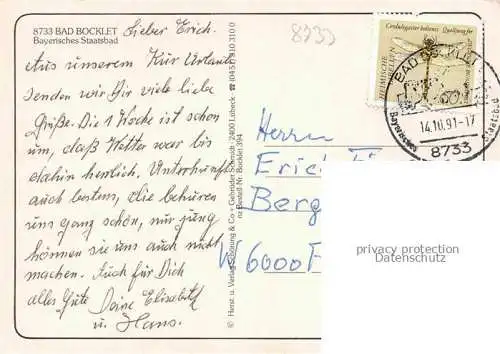 8733 BAD BOCKLET
Bayerisches Staatsbad
Lieber Erich.
Aus unserem Kur Urlaub
senden wir Dir viele liebe
Grüße. Die 1 Woche ist schon
um, daß Wetter war bis
dahin herlich, Unterkunft
auch bestens, die behüren
uns ganz schön, nur jung
können sie uns auch nicht
machen. Auch für Dich
alles Gute Deine Elisabeth
u. Hans.
Herst. u. Verlag Schöning & Co + Gebrüder Schmidt · 2400 Lübeck · ☎ (0451) 310 310 0
Bestell-Nr. Bocklet 394
8733
Cordulegaster bidentatus Quelljungfer
HEIMISCHE
60
BAD BOCKLET
14.10.91-17
Bayerisches Staatsbad
8733
Herrn
Erich
Berg
W 6000 F
privacy protection
Datenschutz